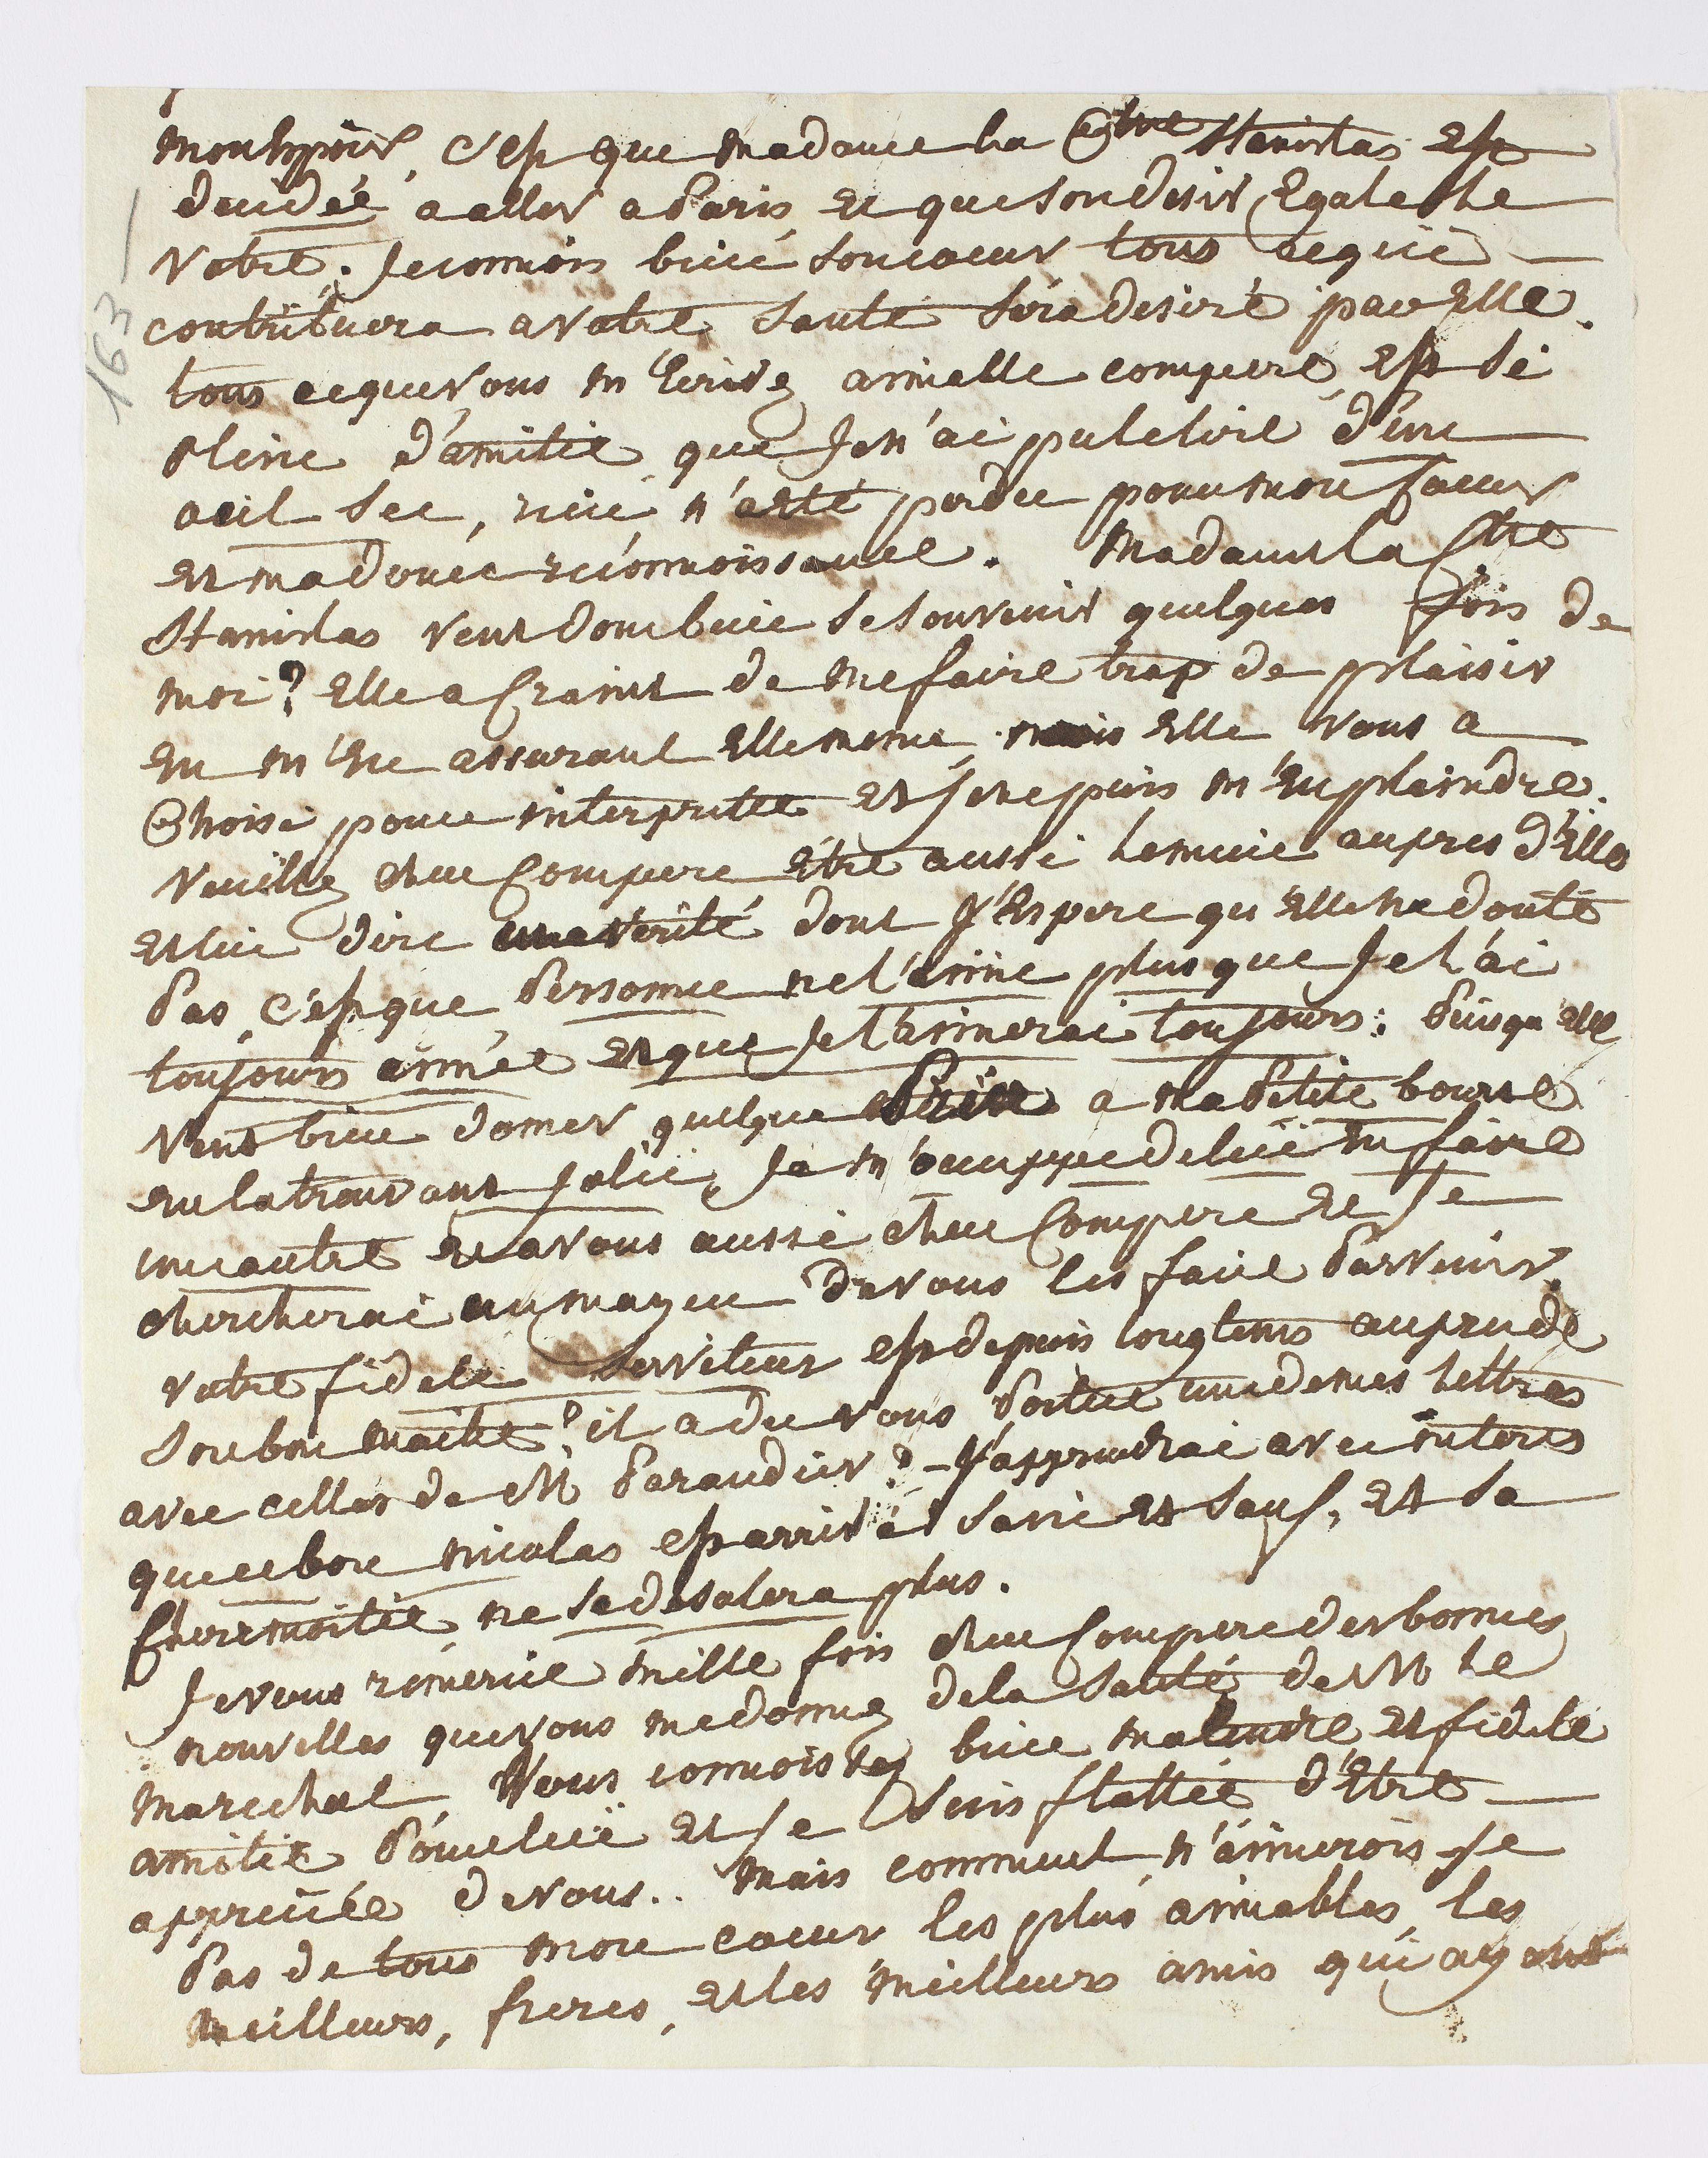 mon Espoir, c'est que madame la Ctsse Stanislas est
decidée a aller a Paris et que son desir Egale le
votre. Je connois bien son coeur tous ce qui
contribuera a votre santé sera desiré par Elle.
tous ce que vous m'Ecrivez aimable compere, est si
pleine d'amitié que Je n'ai pu le lire d'une
oeil sec, rien n'a eté perdu pour mon Coeur
et ma reconnoissance. Madame la Ctsse
Stanislas veut donc bien se souvenir quelques fois de
moi? Elle a Craint de me faire trop de plaisir
en m'En assurant Elle meme, mais Elle vous a
Choisi pour interprette et Je ne puis m'En plaindre.
Veuillez cher Compere Etre aussi le mien aupres d'Elle
et lui dire une verité dont J'Espere qu'Elle ne doute
Pas, c'est que Personne ne l'aime plus que Je l'ai
toujours aimée et que Je l'aimerai toujours: Puisqu'elle
Veut bien donner quelque Prix a ma Petite bourse
en la trouvant Jolie, Je m'occuppe de lui en faire
une autre et a vous aussi cher Compere et Je
chercherai un moyen de vous les faire Parvenir.
votre fidele serviteur est depuis longtems aupres de
son bon maitre? il a du vous Porter une de mes lettres
avec celles de M Parandier? - J'apprendrai avec interes
que ce bon nicolas est arrivé sain et sauf, et sa
Chere moitié ne se desolera plus.
Je vous remercie mille fois cher Compere des bonnes
nouvelles que vous me donnez de la santé de M le
Marechal. Vous connoissez bien ma tendre et fidele
amitié Pour lui et Je suis flattée d'Etre
appreciée de vous.. Mais comment n'aimerois Je
Pas de tous mon coeur les plus aimables, les
meilleurs, freres, et les meilleurs amis qui ayent
163